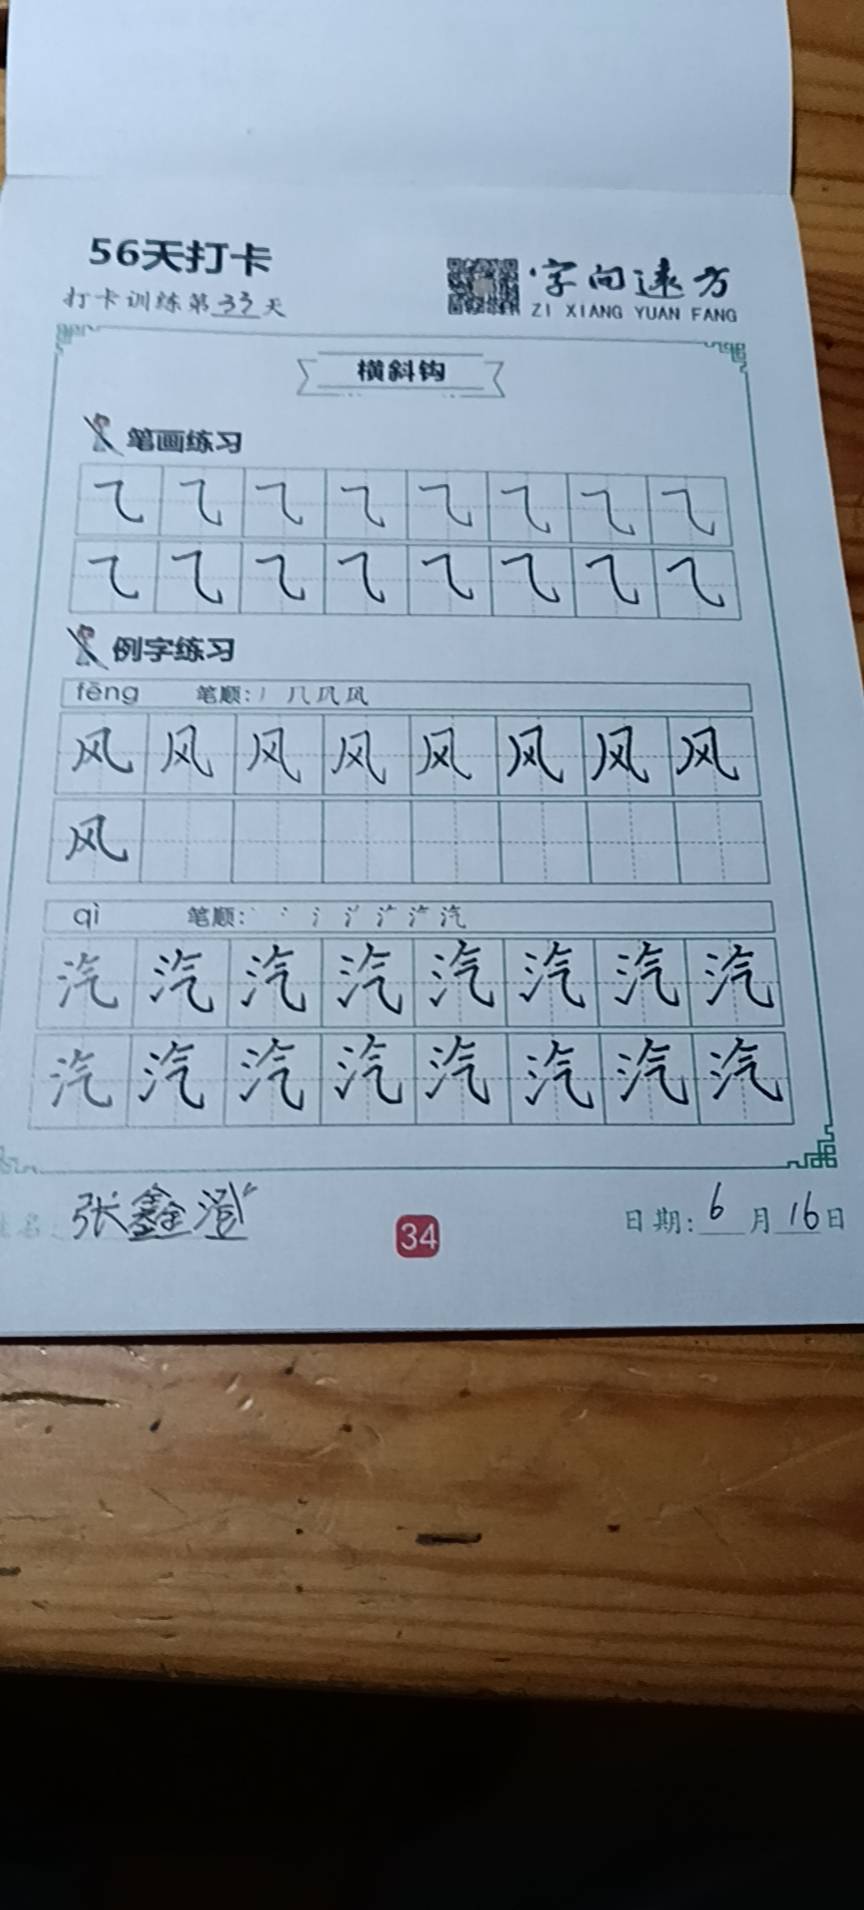 56天打卡
打卡训练第33天
字向远方
ZI XIANG YUAN FANG
横斜钩
笔画练习
㇈㇈㇈㇈㇈㇈㇈㇈
㇈㇈㇈㇈㇈㇈㇈㇈
例字练习
fēng 笔顺: 丿 几 凤 风
风风风风风风风风
风
qì 笔顺: 丶 冫 氵 汽
汽汽汽汽汽汽汽汽
汽汽汽汽汽汽汽汽
姓名: 张鑫
34
日期: 6月16日